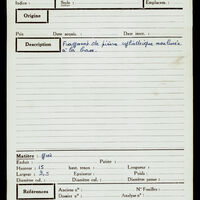 Indice : Style : Emplacem. :
Origine
Pde Date acquis. : Date inv. :
Description Fragment de pierre cylindrique moulurée
à la base.
Matière : grès
Enduit : Patine :
Hauteur : 15 haut. tenon : Longueur :
Largeur : 9,5 Epaisseur : Poids :
Diamètre col. : Diamètre panse :
Références Ancien n° : N° Fouilles :
Dossier n° : Analyse n° :